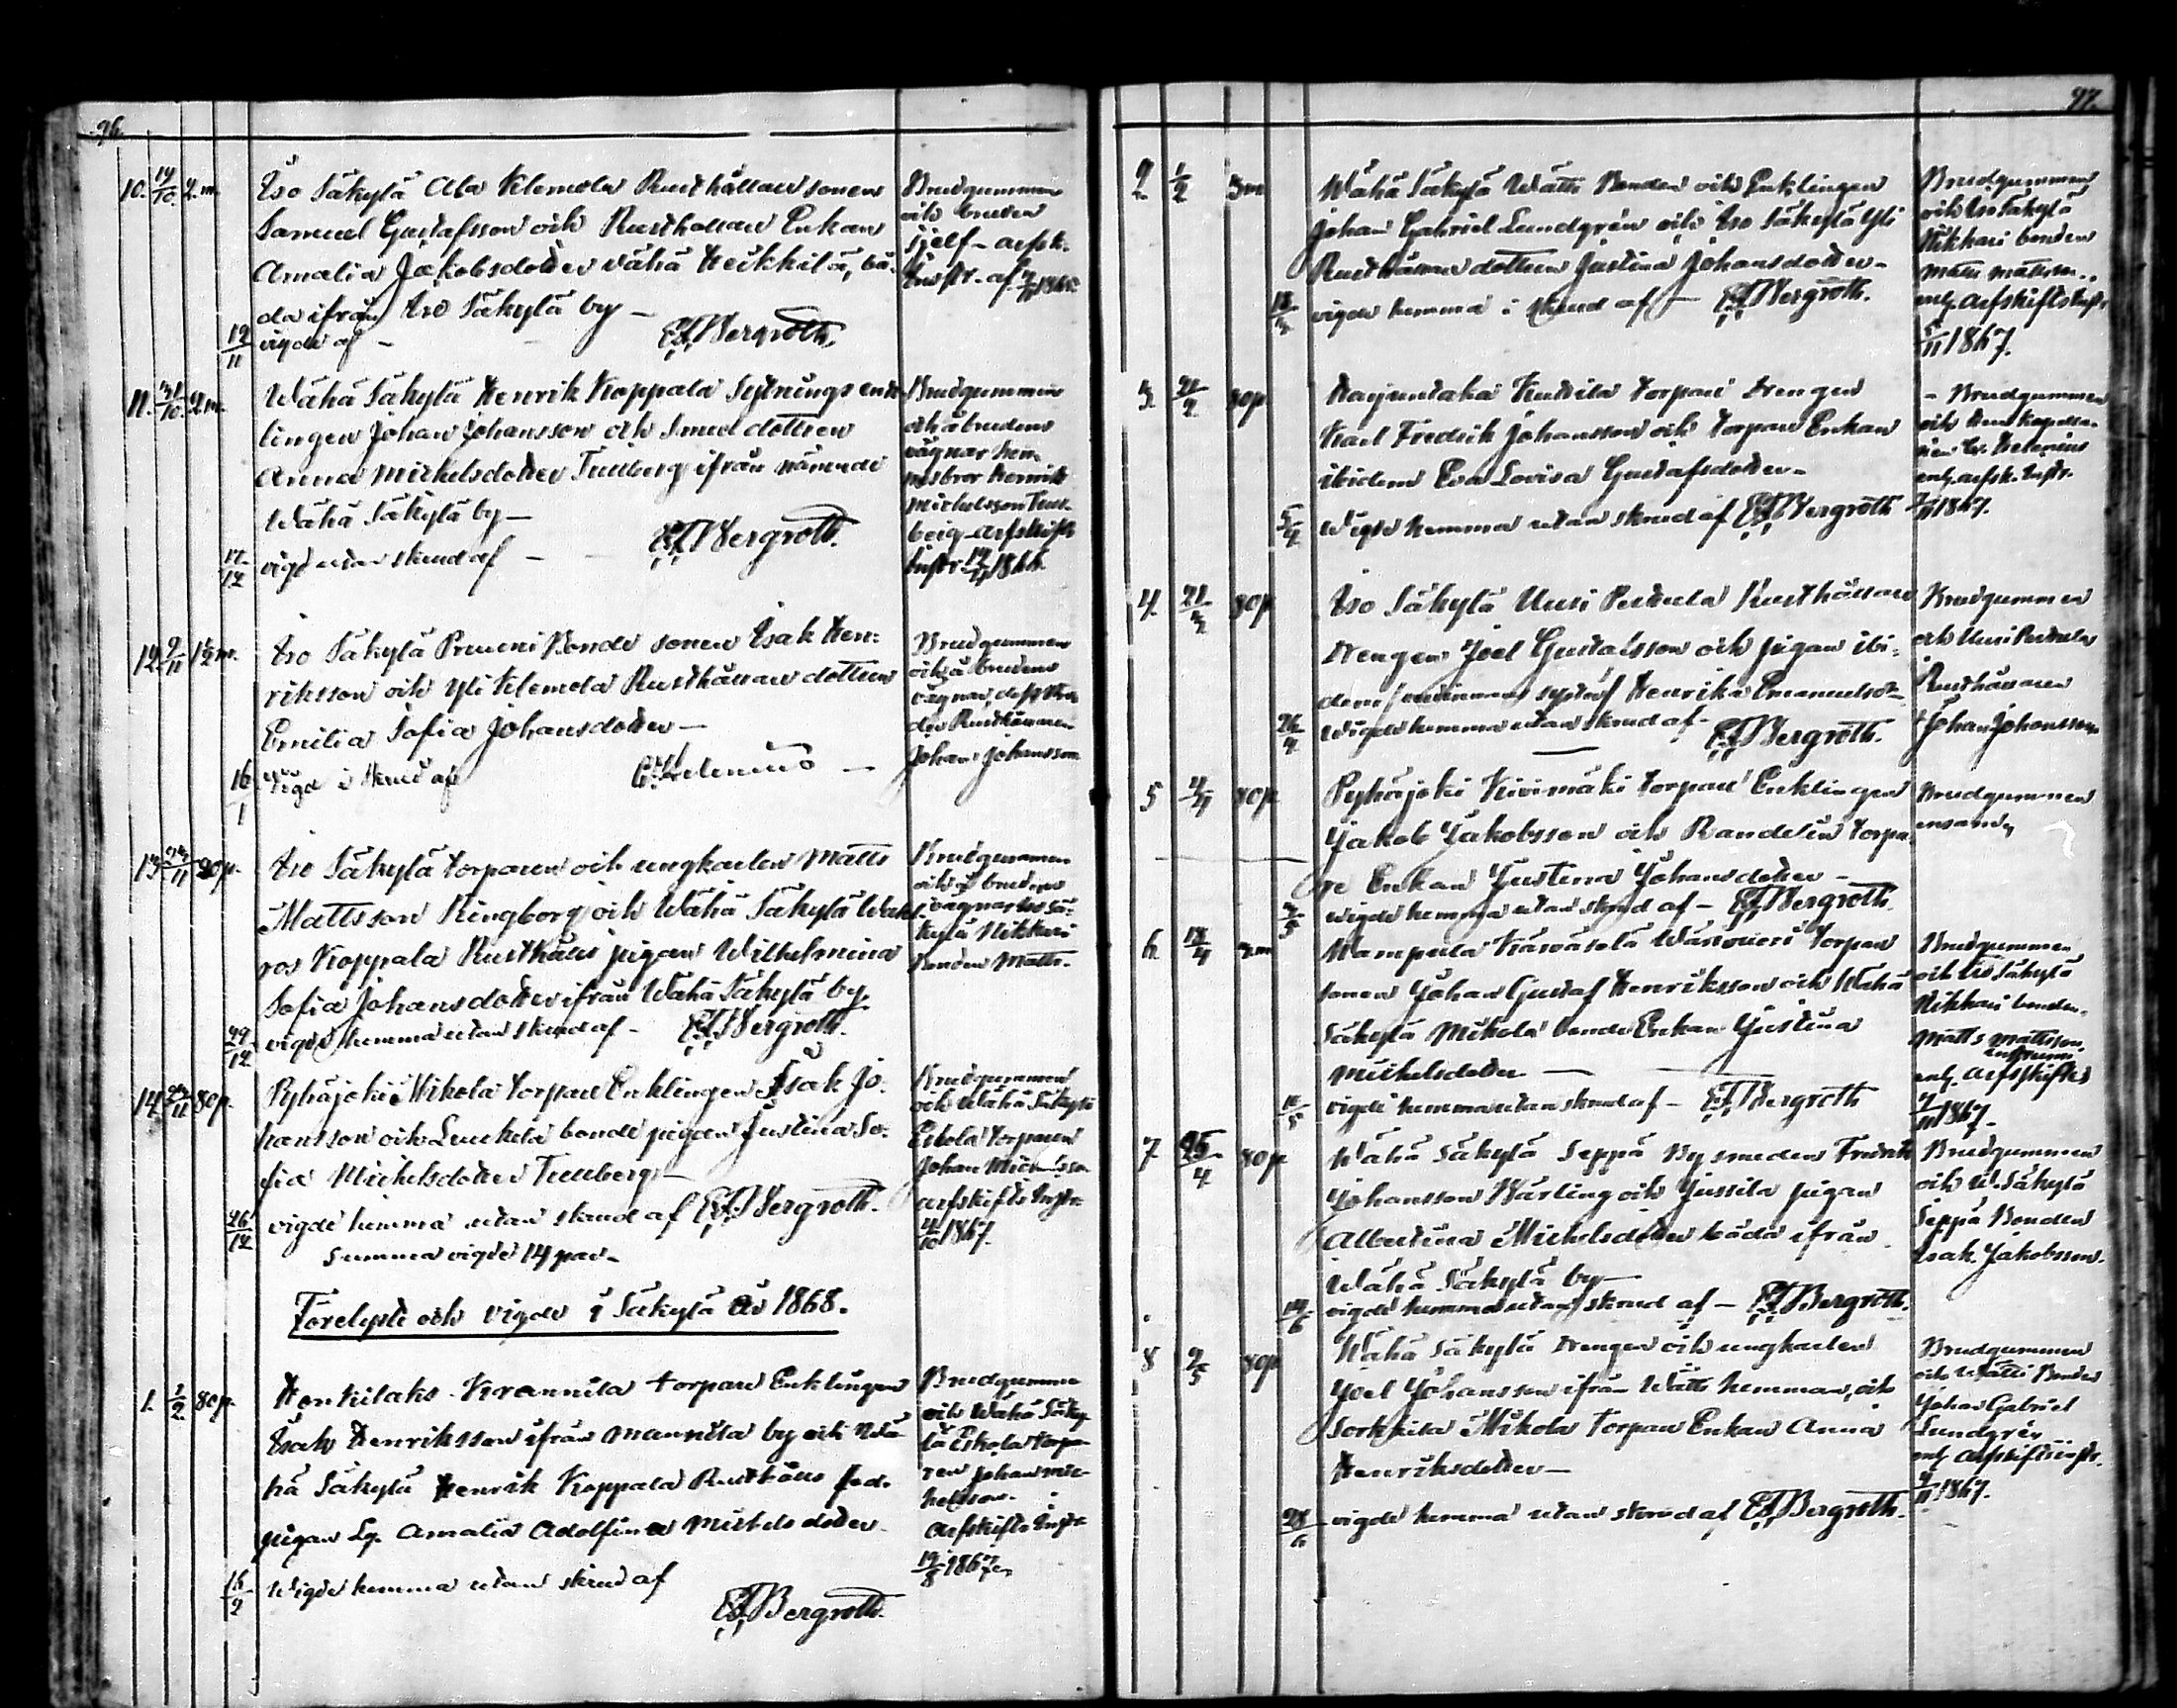 96.
10. 14/10. 2. m. Iso Säkylä Ala Klemola Rusthållare sonen
Samuel Gustafsson och Rusthållare Enkan
Amalia Jakobsdotter Vähä Heikkilä, bå-
da ifrån Iso Säkylä by –
12/11 vigde af – EFBergroth.
Brudgummen
och bruden
sjelf – arfsk.
Instr. af
11. 21/10. 2 m. Wähä Säkylä Henrik Koppala Sytnings enk-
lingen Johan Johansson och Smed dottren
Anna Michelsdotter Tullberg ifrån nämnde
Wähä Säkylä by –
17/12 vigd utan skrud af – EFBergroth.
Brudgummen
och å brudens
vägnar hen-
nes bror Henrik
Michelsson Tull-
berg – Arfskifts
Instr. 1866.
12. 9/11 1½ m. Iso Säkylä Pruuni Bonde sonen Isak Hen-
riksson och Yli Klemola Rusthållare dottren
Emilia Sofia Johansdotter –
16/1 Vigd i skrud af Helenius –
Brudgummen
och å brudens
vägnar, dess fa-
der Rusthållaren
Johan Johansson
13. 80 p. Iso Säkylä torparen och ungkarlen Matts
Mattsson Ringborg och Wähä Säkylä Wal-
ros Koppala Rusthålls pigan Wilhelmina
Sofia Johansdotter ifrån Wähä Säkylä by.
29/12 vigde hemma utan skrud af – EFBergroth.
Brudgummen
och å brudens
vägnar Iso Sä-
kylä Nikkari
Bonden Matts.
14. 80 p. Pyhäjoki Mikola torpare Enklingen Isak Jo-
hansson och Luukela bonde pigan Justina So-
fia Michelsdotter Tullberg –
26/12 vigde hemma utan skrud af EFBergroth.
Summa vigde 14 par –
Brudgummen
och Wähä Säkylä
Eskola torparen
Johan Michelsson
arfskifts Instr.
4/10 1867.
Förelyste och vigde i Säkylä År 1868.
1. 1/2. 80 p. Honkilaks Krannila torpare Enklingen
Isak Henriksson ifrån Mannila by och Wä-
hä Säkylä Henrik Koppala Rusthålls fed.
pigan Lg. Amalia Adolfina Michelsdotter
16/2 Wigde hemma utan skrud af
EFBergroth.
Brudgumme
och Wähä Säky-
lä Eskola torpa-
ren Johan Mic-
helsson.
Arfskifts Instr.
19/8 1867.
97.
2 1/2 3 m Wähä Säkylä Wätti Bonden och Enklingen
Johan Gabriel Lundgrén och Iso Säkylä Yli
Rusthållare dottren Justina Johansdotter –
vigde hemma i skrud af – EFBergroth.
Brudgummen
och Iso Säkylä
Nikkari bonden
Matts Mattsson.
enl. Arfskifts Instr.
5/11 1867.
3. 80 p Harjuntaka Kuttila torpare Drengen
Karl Fredrik Johansson och torpare Enkan
ibidem Eva Lovisa Gustafsdotter –
5/4 Wigde hemma utan skrud af EFBergroth
– Brudgummen
och Herr Kapella-
nen Helenius
enl. arfsk. Instr.
1867.
4. 80 p Iso Säkylä Uusi Perttula Rusthållare
Drengen Joel Gustafsson och pigan ibi-
dem Henrika Emanuelsdr
26/4 Wigde hemma utan skrud af – EFBergroth.
Brudgummen
och Uusi Perttula
Rusthållaren
Johan Johansson
5 4/4 80 p. Pyhäjoki Kivimäki torpare Enklingen
Jakob Jakobsson och Randelin torpa-
re Enkan Justina Johansdotter –
vigde hemma utan skrud af – EFBergroth
Brudgummen
ensam
6. 18/4 2 m Wampula Wäsviori Torpare
sonen Johan Gustaf Henriksson och Wähä
Säkylä Mikola bonde Enkan Justina
Michelsdotter –
vigde hemma utan skrud af – EFBergroth
Brudgummen
och Iso Säkylä
Nikkari bonden
Matts Mattsson.
enl. Arfskifts
1867.
7 25/4 80 p Wähä Säkylä Seppä Bysmeden Fredrik
Johansson Wärling och Jussila pigan
Albertina Michelsdotter båda ifrån
Wähä Säkylä by –
vigde hemma utan skrud af – EFBergroth.
Brudgummen
och W. Säkylä
Seppä Bonden
Isak Jakobsson.
8 9/5 80 p Wähä Säkylä Drengen och ungkarlen
Joel Johansson ifrån Wätti hemman, och
Sorkkila Mikola Torpare Enkan Anna
Henriksdotter –
28/6 vigde hemma utan skrud af EFBergroth.
Brudgummen
och Wätti Bonden
Johan Gabriel
Lundgrén
enl. Arfskiftsinstr.
1867.